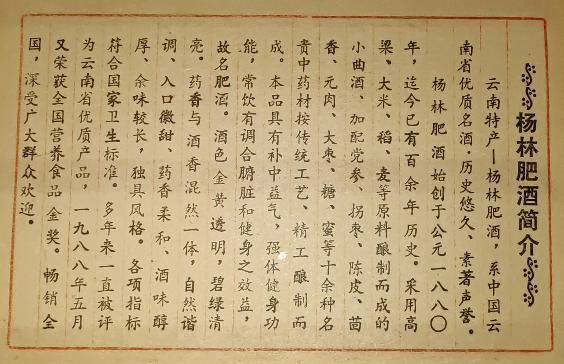 杨林肥酒简介
云南特产—杨林肥酒，系中国云
南省优质名酒；历史悠久、素著声誉。
杨林肥酒始创于公元一八八〇
年，迄今已有百余年历史。采用高
梁、大米、稻、麦等原料酿制而成的
小曲酒、加配党参、拐枣、陈皮、茴
香、元肉、大枣、糖、蜜等十余种名
贵中药材按传统工艺、精工酿制而
成。本品具有补中益气，强体健身功
能，常饮有调合腑脏和健身之效益，
故名肥酒。酒色金黄透明，碧绿清
亮。药香与酒香混然一体，自然谐
调、入口微甜、药香柔和、酒味醇
厚、余味较长，独具风格。各项指标
符合国家卫生标准。多年来一直被评
为云南省优质产品，一九八八年五月
又荣获全国营养食品金奖。畅销全
国，深受广大群众欢迎。